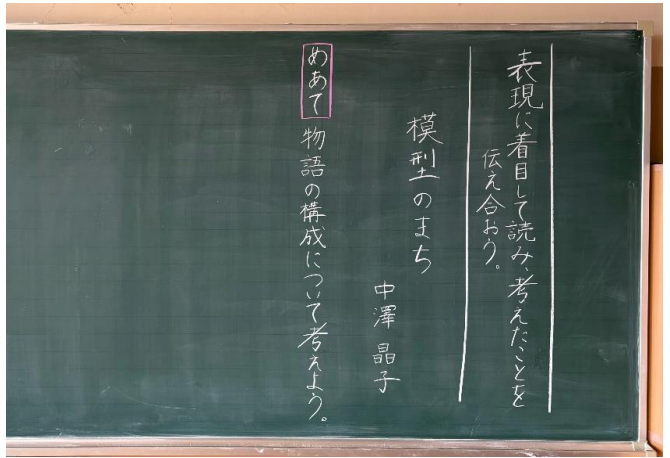 表現に着目して読み、考えたことを
伝え合おう。
模型のまち
中澤 晶子
めあて 物語の構成について考えよう。